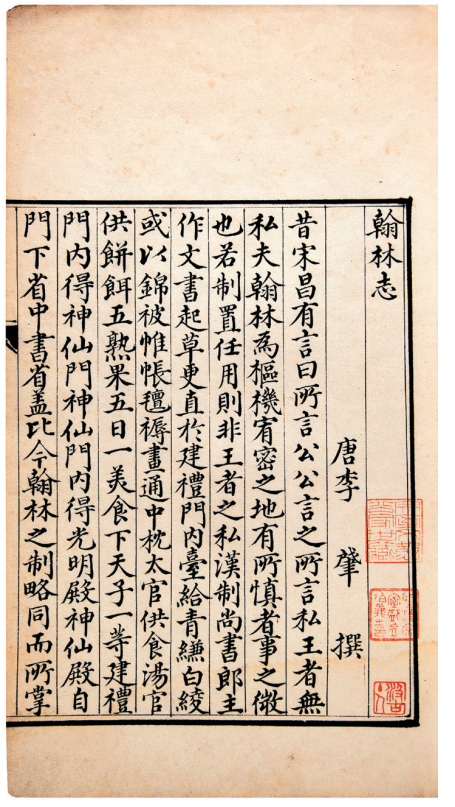 翰林志
唐李肇撰
昔宋昌有言曰所言公公言之所言私王者無
私夫翰林為樞機宥密之地有所慎者事之微
也若制置任用則非王者之私漢制尚書郎主
作文書起草更直於建禮門內臺給青縑白綾
或以錦被帷帳氊褥畫通中枕太官供食湯官
供餅餌五熟果五日一美食下天子一等建禮
門內得神仙門神仙門內得光明殿神仙殿自
門下省中書省盖比今翰林之制略同而所掌